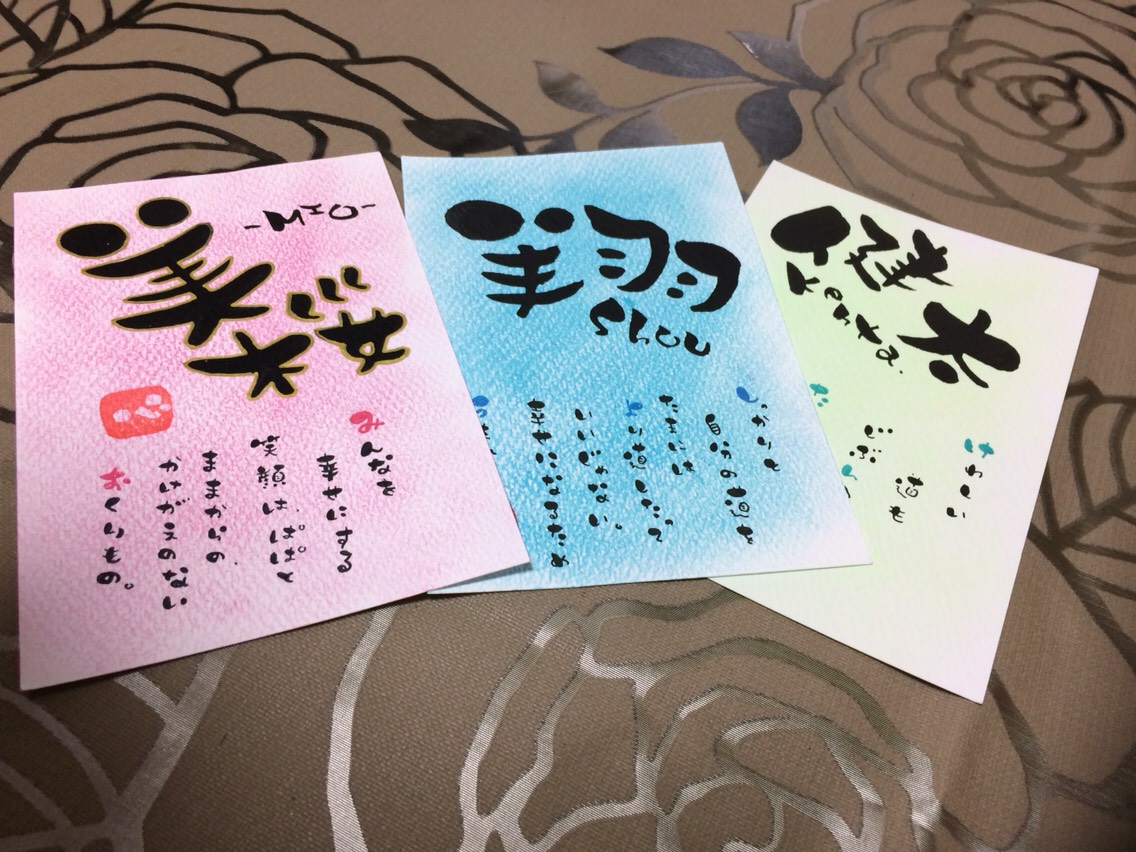 美桜
-MIO-
みんなを
幸せにする
笑顔は、ぱぱと
ままからの
かけがえのない
おくりもの。
翔
Shou
しっかりと
自分の道を
たまには
より道したって
いいじゃない。
幸せになるため
健太
Kenta.
けわしい
道も